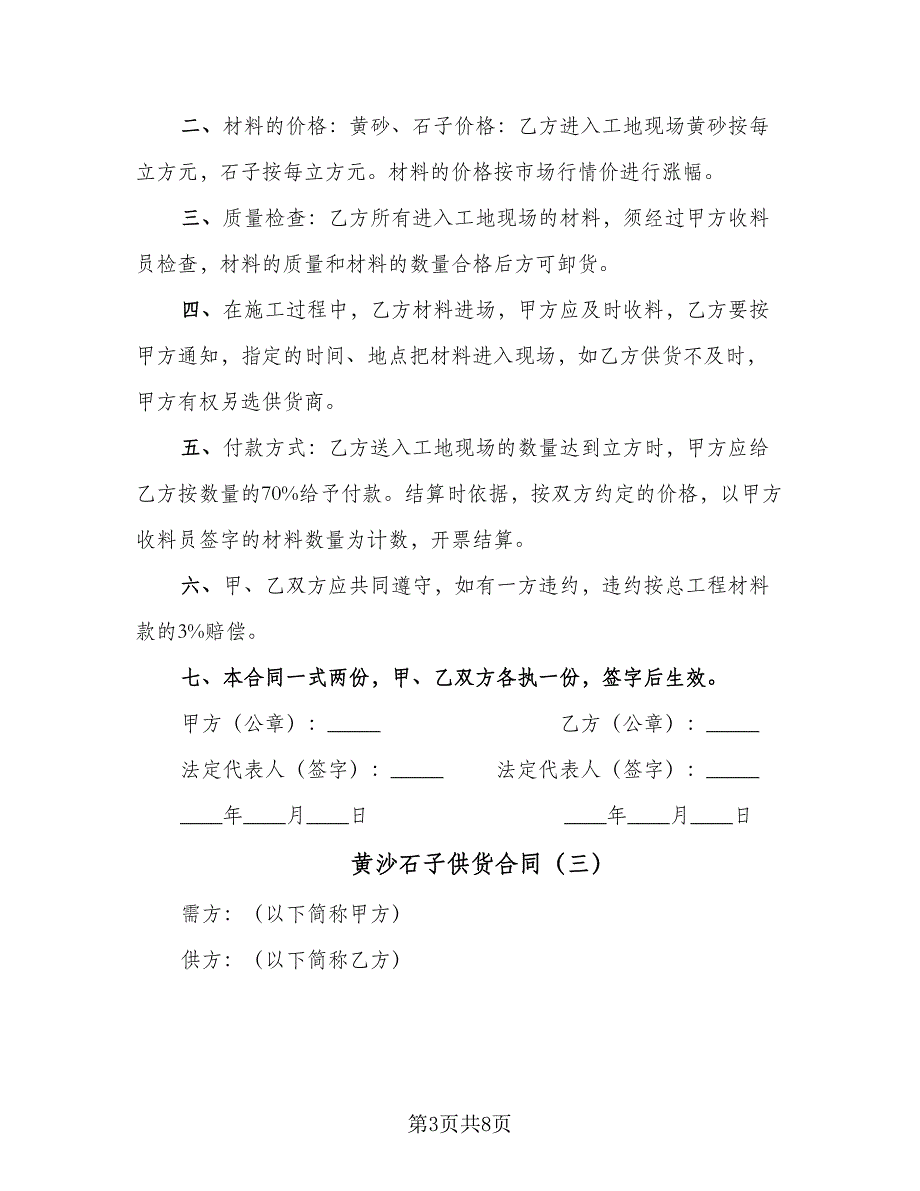 二、材料的价格：黄砂、石子价格：乙方进入工地现场黄砂按每
立方元，石子按每立方元。材料的价格按市场行情价进行涨幅。
三、质量检查：乙方所有进入工地现场的材料，须经过甲方收料
员检查，材料的质量和材料的数量合格后方可卸货。
四、在施工过程中，乙方材料进场，甲方应及时收料，乙方要按
甲方通知，指定的时间、地点把材料进入现场，如乙方供货不及时，
甲方有权另选供货商。
五、付款方式：乙方送入工地现场的数量达到立方时，甲方应给
乙方按数量的70%给予付款。结算时依据，按双方约定的价格，以甲方
收料员签字的材料数量为计数，开票结算。
六、甲、乙双方应共同遵守，如有一方违约，违约按总工程材料
款的3%赔偿。
七、本合同一式两份，甲、乙双方各执一份，签字后生效。
甲方（公章）：_____ 乙方（公章）：_____
法定代表人（签字）：_____ 法定代表人（签字）：_____
____年____月____日 ____年____月____日
黄沙石子供货合同（三）
需方：（以下简称甲方）
供方：（以下简称乙方）
第3页共8页